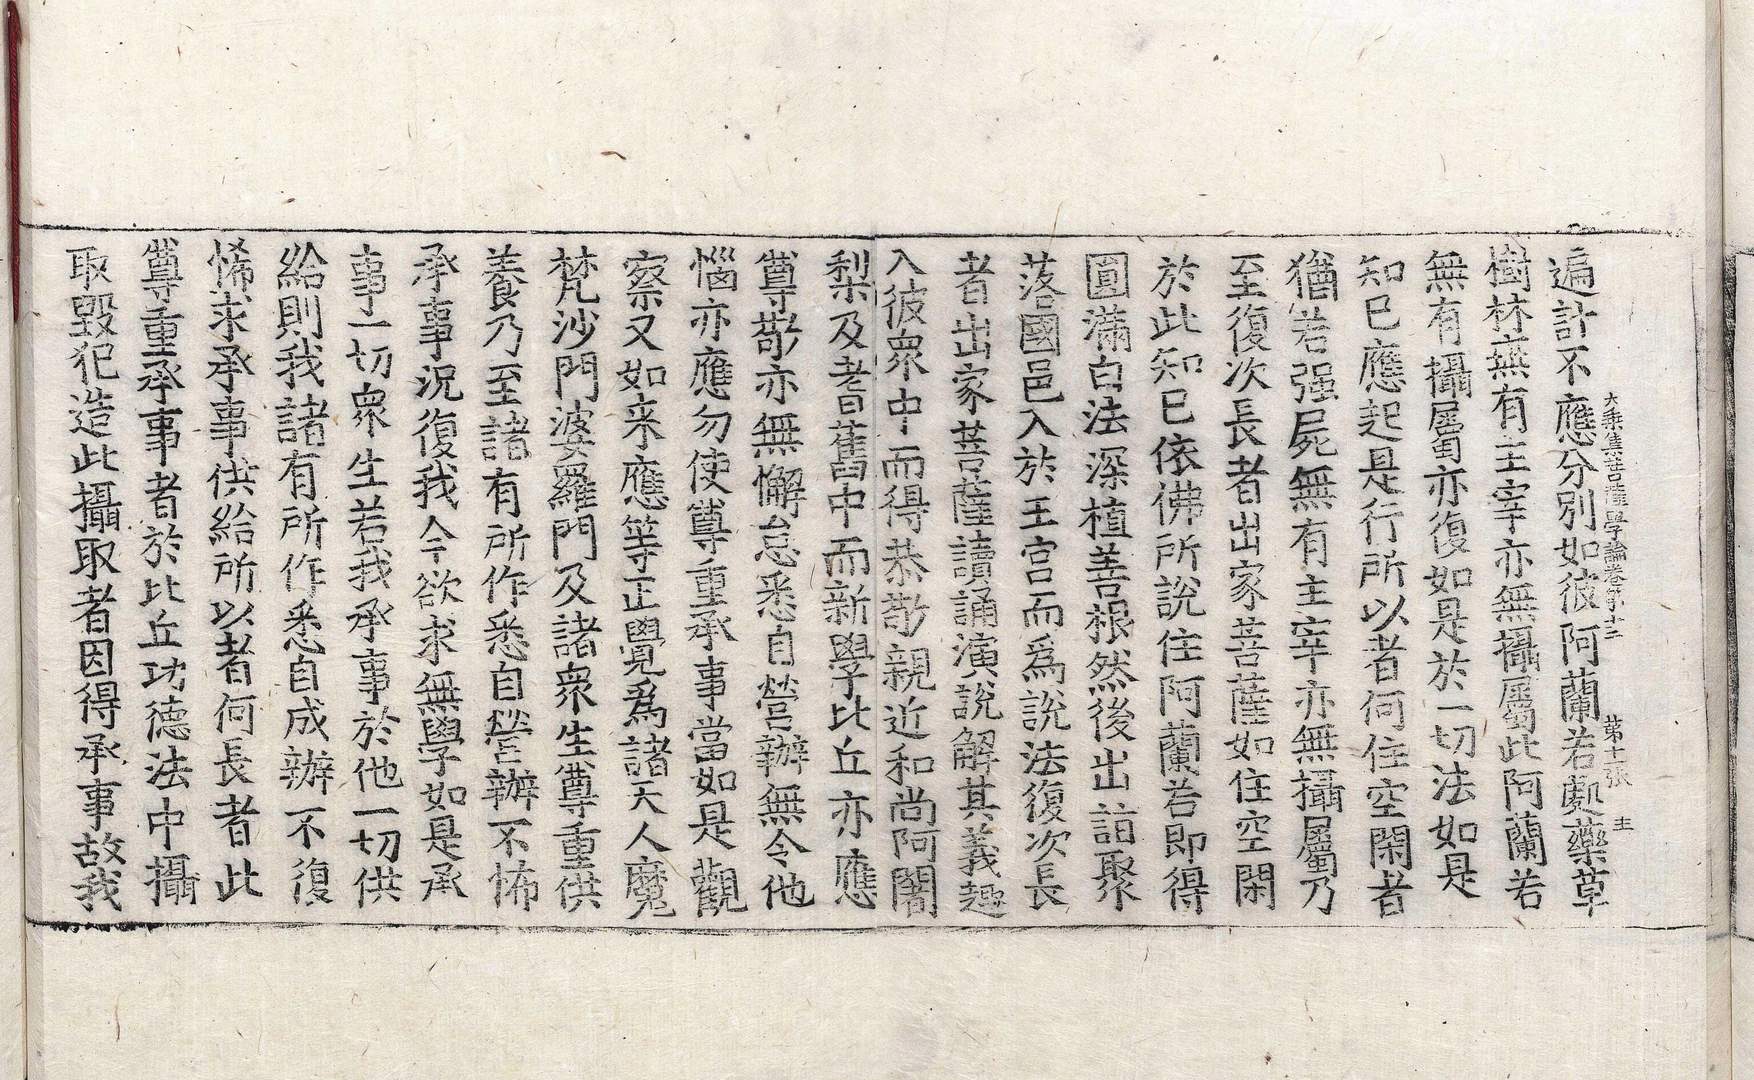 大乘集菩薩學論卷第十三 第十張 主
遍計不應分別如彼阿蘭若處藥草
樹林無有主宰亦無攝屬此阿蘭若
無有攝屬亦復如是於一切法如是
知已應起是行所以者何住空閑者
猶若强屍無有主宰亦無攝屬乃
至復次長者出家菩薩如住空閑
於此知已依佛所說住阿蘭若即得
圓滿白法深植善根然後出詣聚
落國邑入於王宮而爲說法復次長
者出家菩薩讀誦演說解其義趣
入彼衆中而得恭敬親近和尚阿闍
梨及耆舊中而新學比丘亦應
尊敬亦無懈怠悉自營辦無令他
惱亦應勿使尊重承事當如是觀
察又如来應等正覺爲諸天人魔
梵沙門婆羅門及諸衆生尊重供
養乃至諸有所作悉自營辦不怖
承事况復我今欲求無學如是承
事一切衆生若我承事於他一切供
給則我諸有所作悉自成辦不復
悕求承事供給所以者何長者此
尊重承事者於比丘功德法中攝
取毀犯造此攝取者因得承事故我